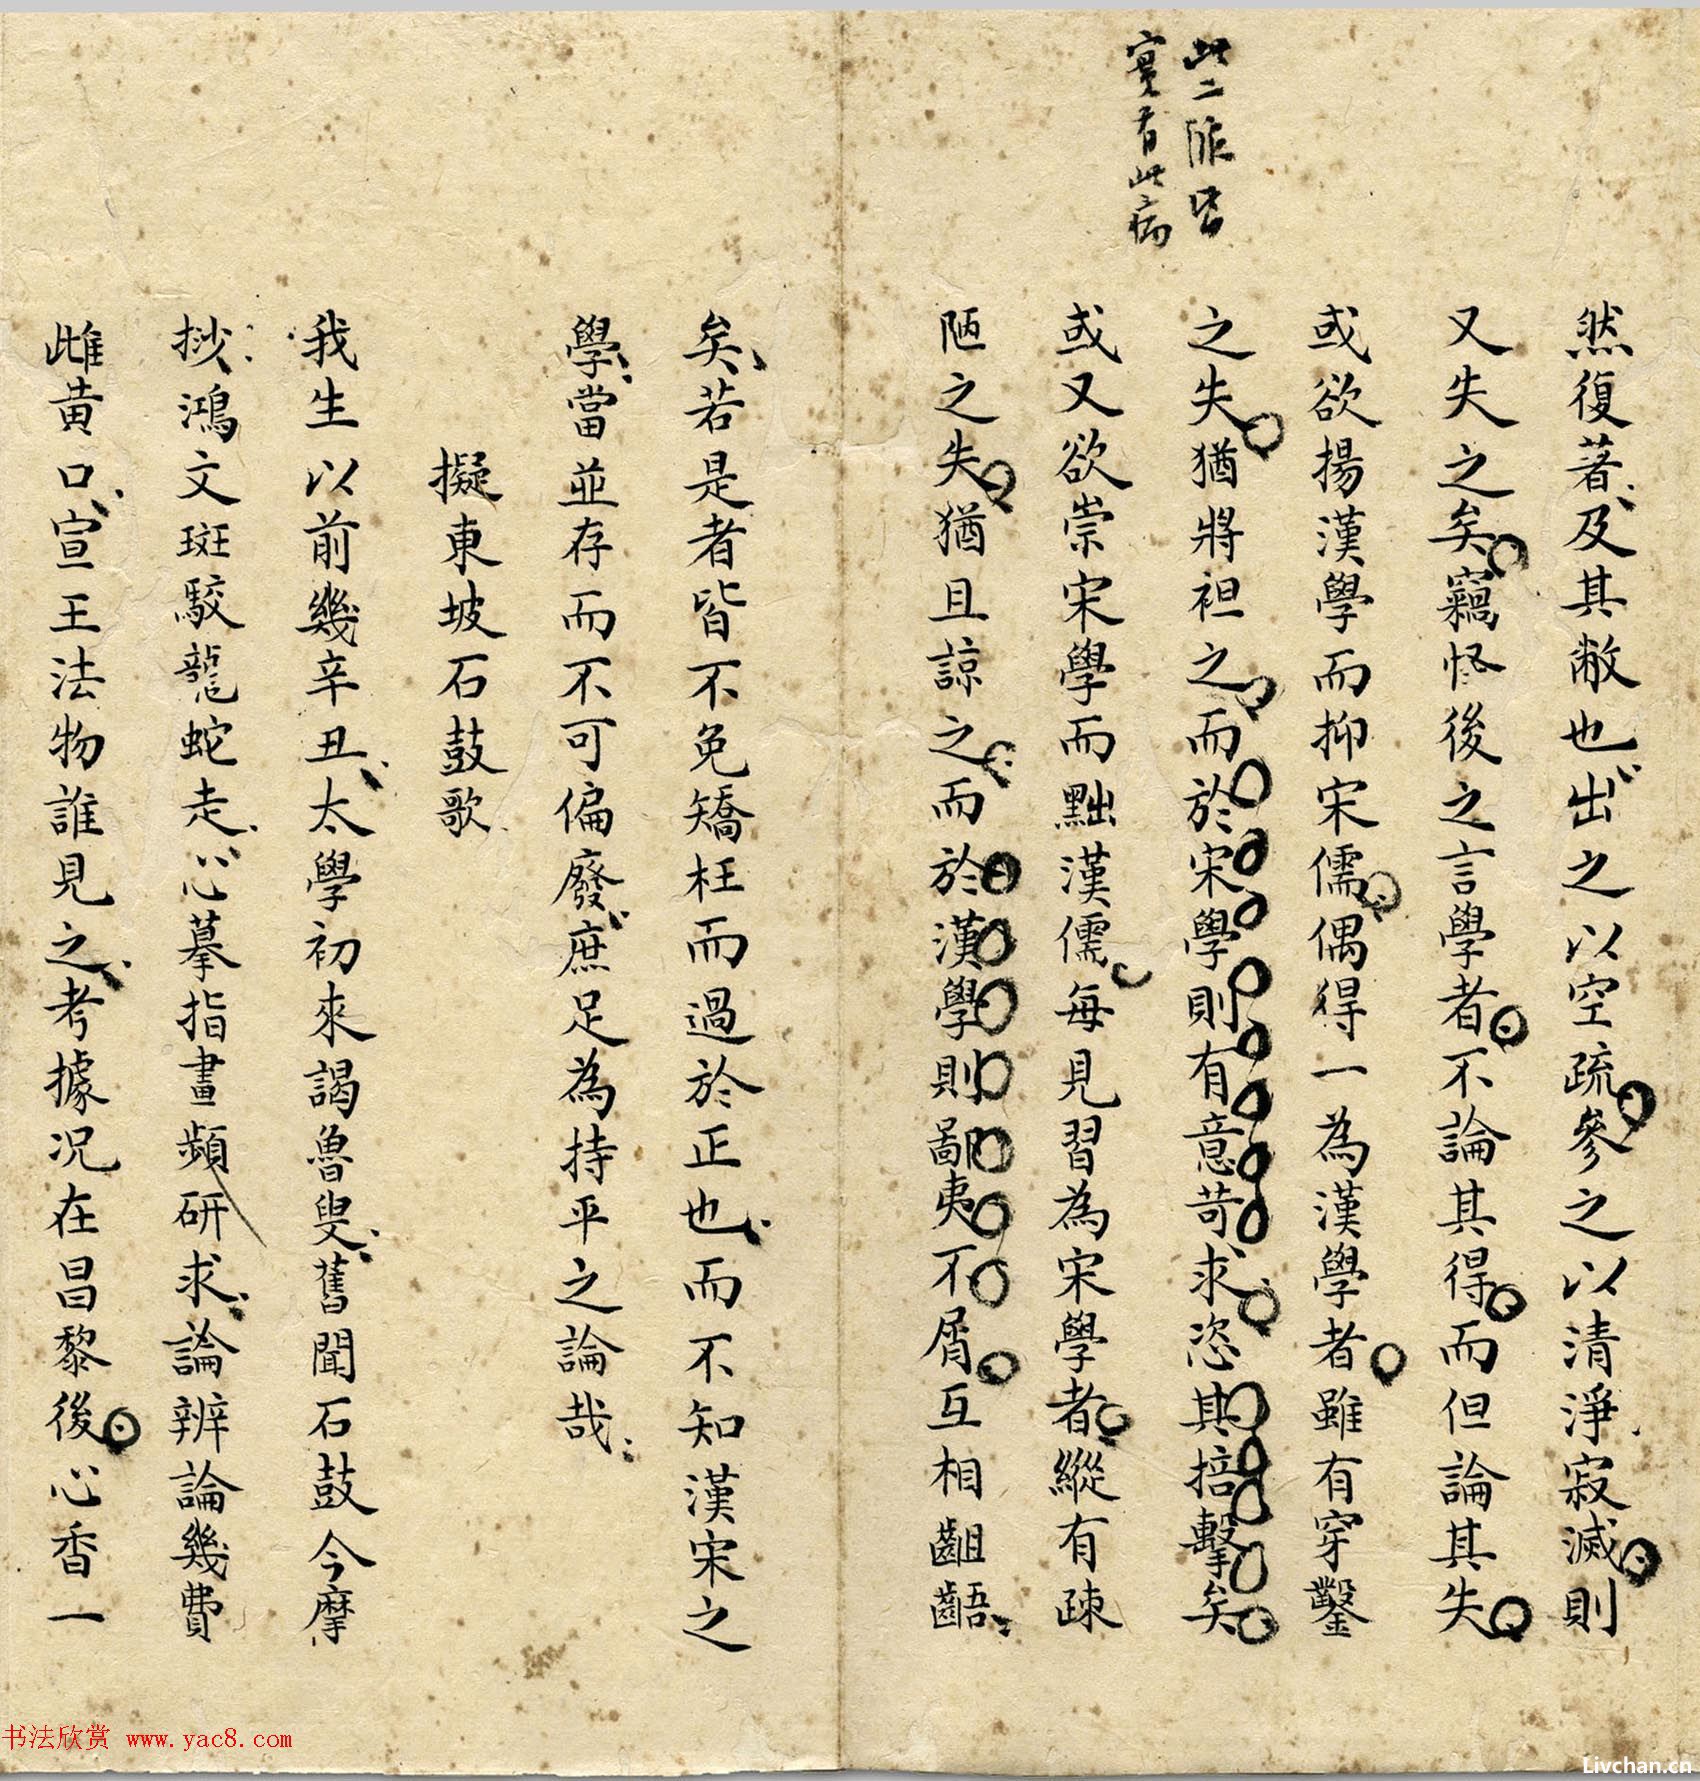 此二派皆
實有此病
然復著及其敝也出之以空疏參之以清淨寂滅則
又失之矣竊怪後之言學者不論其得而但論其失
或欲揚漢學而抑宋儒偶得一為漢學者雖有穿鑿
之失猶將袒之而於宋學則有意苛求恣其掊擊矣
或又欲崇宋學而黜漢儒每見習為宋學者縱有疎
陋之失猶且諒之而於漢學則鄙夷不屑互相齟齬
矣若是者皆不免矯枉而過於正也而不知漢宋之
學當並存而不可偏廢庶足為持平之論哉
擬東坡石鼓歌
我生以前幾辛丑太學初來謁魯叟舊聞石鼓今摩
挱鴻文斑駮龍蛇走心摹指畫頻研求論辨論幾費
雌黄口宣王法物誰見之考據况在昌黎後心香一
书法欣赏 www.yac8.com
Livchan.cn